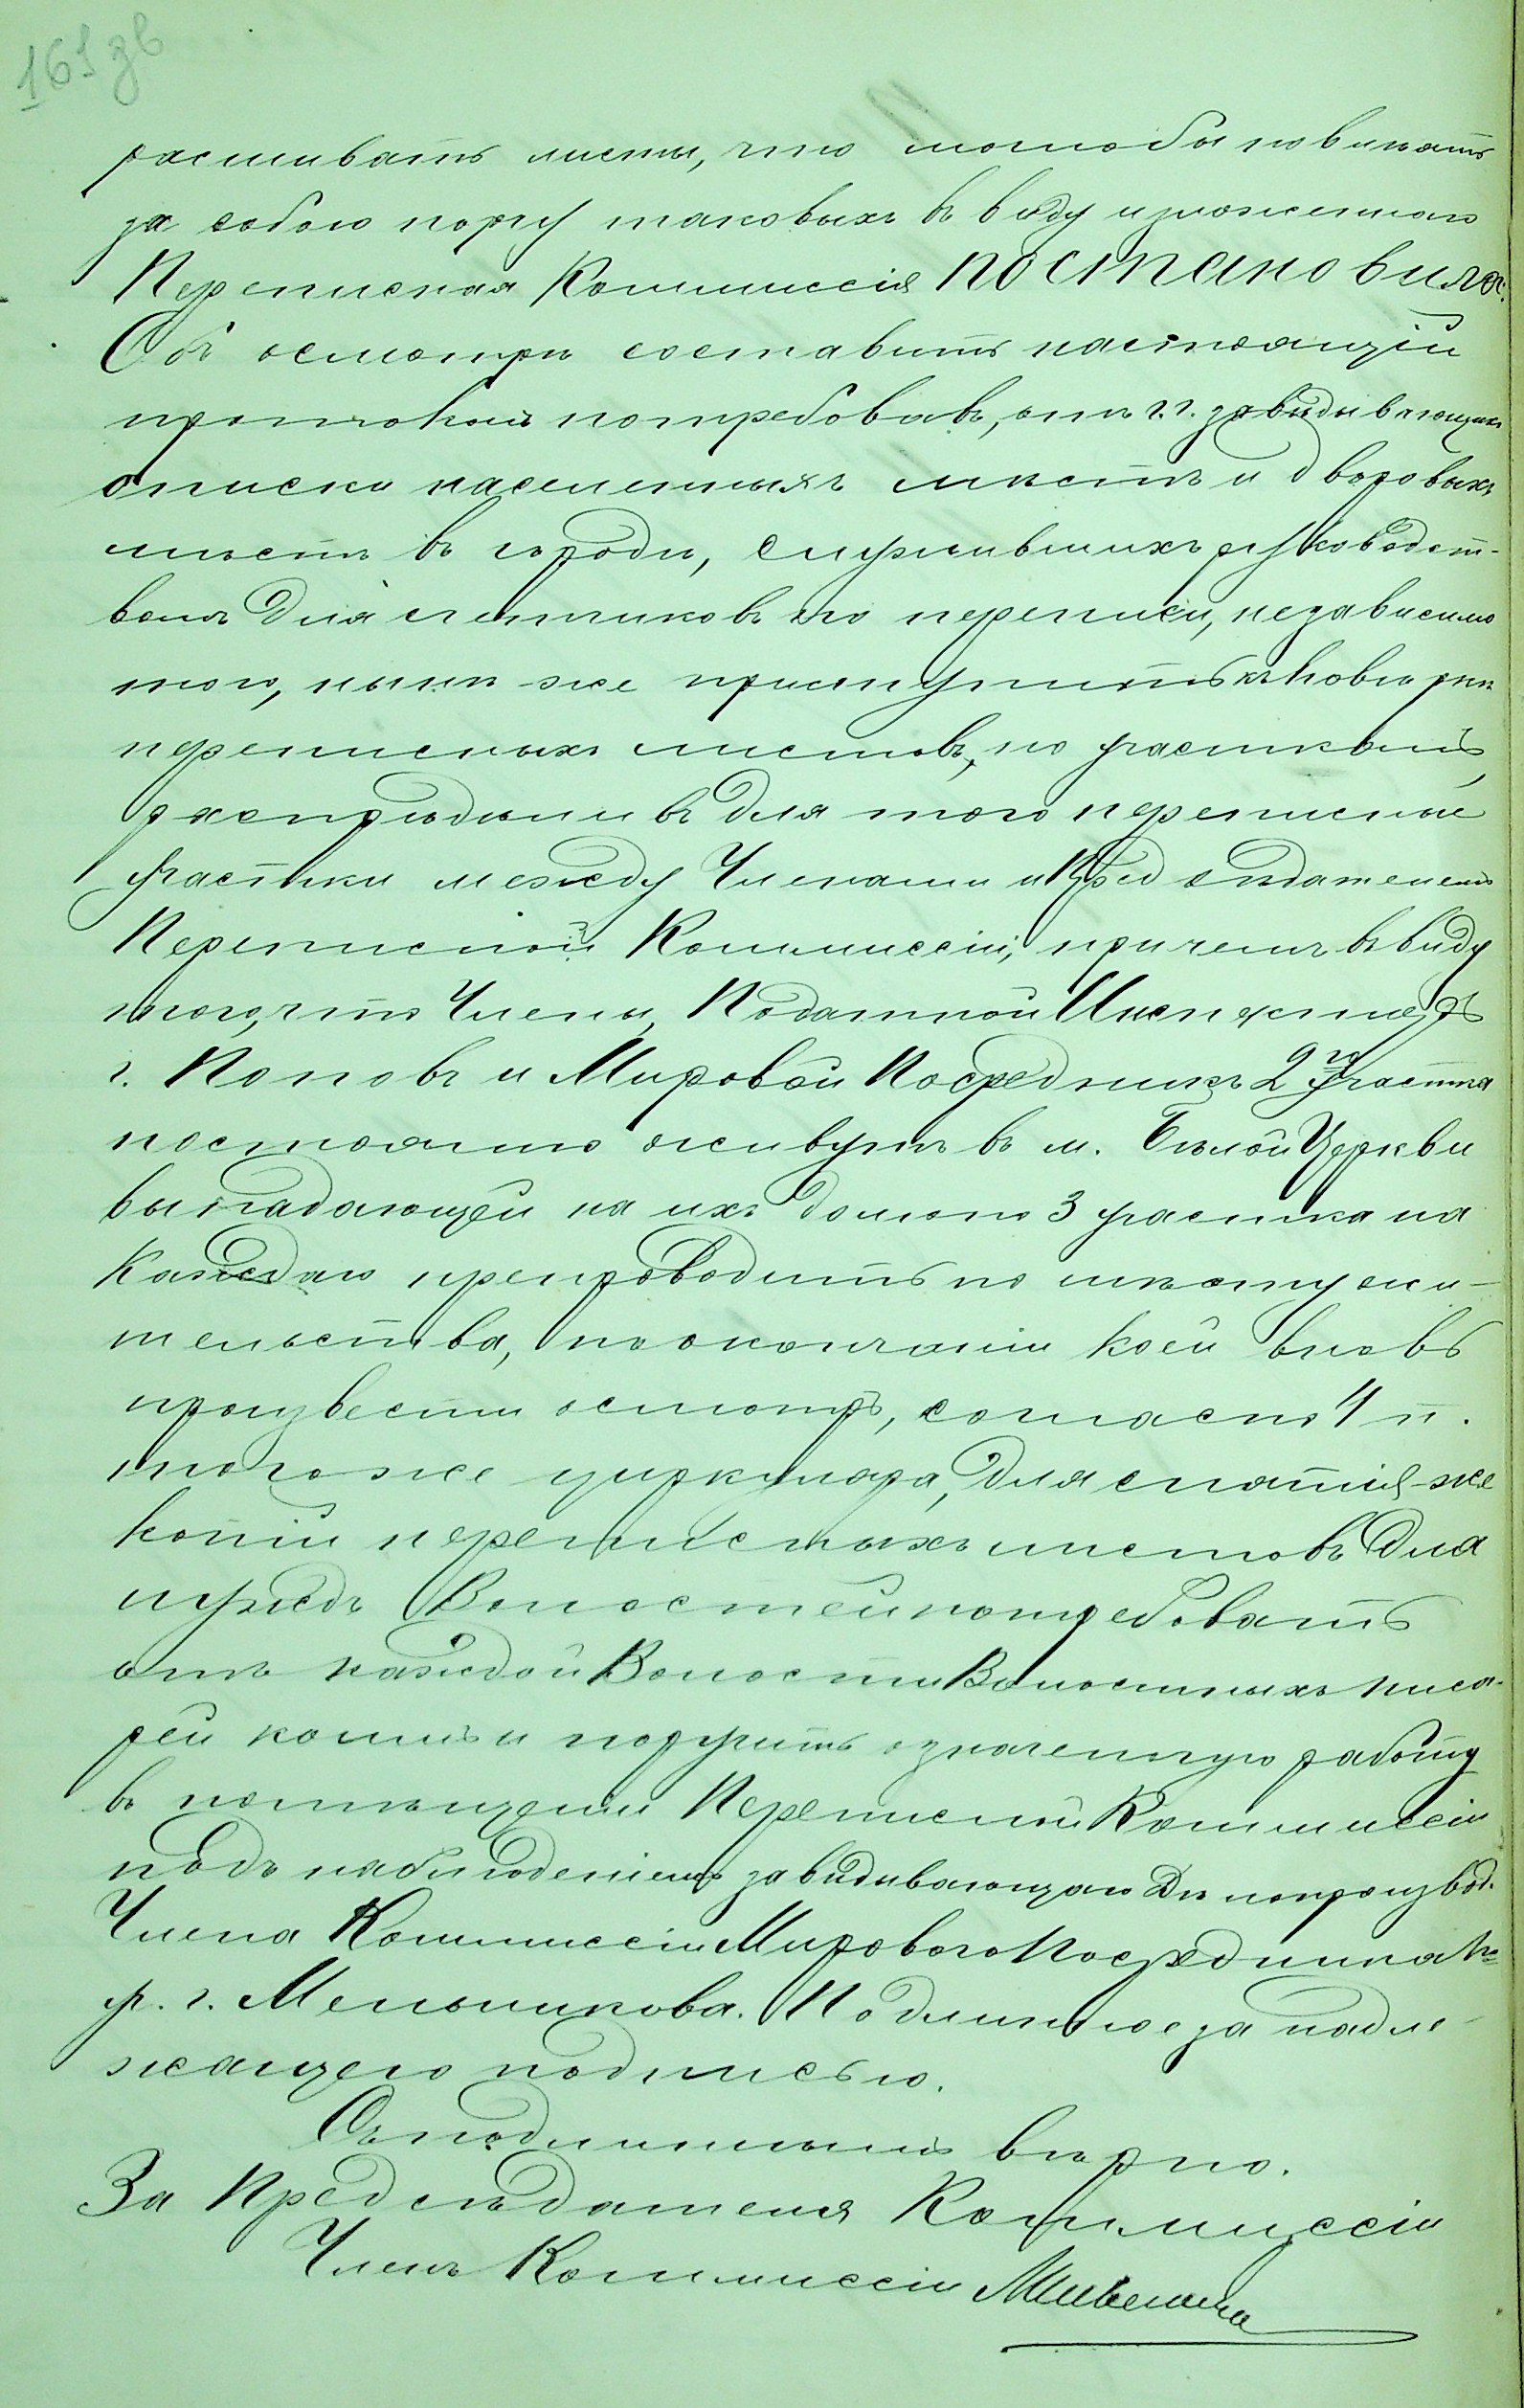 161 зв
расшивать листы, что могло бы повлечь
за собою порчу таковых въ виду изложеннаго
Переписная Коммиссія постановила:
Объ осмотрѣ составить настоящій
протоколъ потребовавъ, отъ г.г. завѣдывающихъ
списки населенныхъ мѣстъ и дворовыхъ
мѣстъ въ городѣ, служившихъ руководст-
вомъ для счетчиковъ по переписи, независимо
того, нынѣ-же приступить къ повѣркѣ
переписныхъ листовъ, по участкамъ,
распредѣливъ для того переписные
участки между Членами и Предсѣдателемъ
Переписной Коммиссіи, причемъ въ виду
того, что Члены, Податной Инспекторъ
г. Поповъ и Мировой Посредникъ 2го участка
постоянно живутъ въ м. Бѣлой Церкви
выпадающей на ихъ долю по 3 участка на
каждаго препроводить по мѣсту жи-
тельства, по окончаніи коей вновь
произвести осмотръ, согласно 4 п.
того же циркуляра, для снятія-же
копій переписныхъ листовъ для
нуждъ Волостей потребовать
отъ каждой Волости Волостныхъ писа-
рей комъ и поручить означенную работу
въ помѣщеніи Переписной Коммиссіи
подъ наблюденіемъ завѣдывающаго Дѣлопроизвод.
Члена Коммиссіи Мирового Посредника 1го
уч. г. Мельникова. Подлинное за надле-
жащею подписью.
Съ подлиннымъ вѣрно.
За Предсѣдателя Коммиссіи
Членъ Коммиссіи